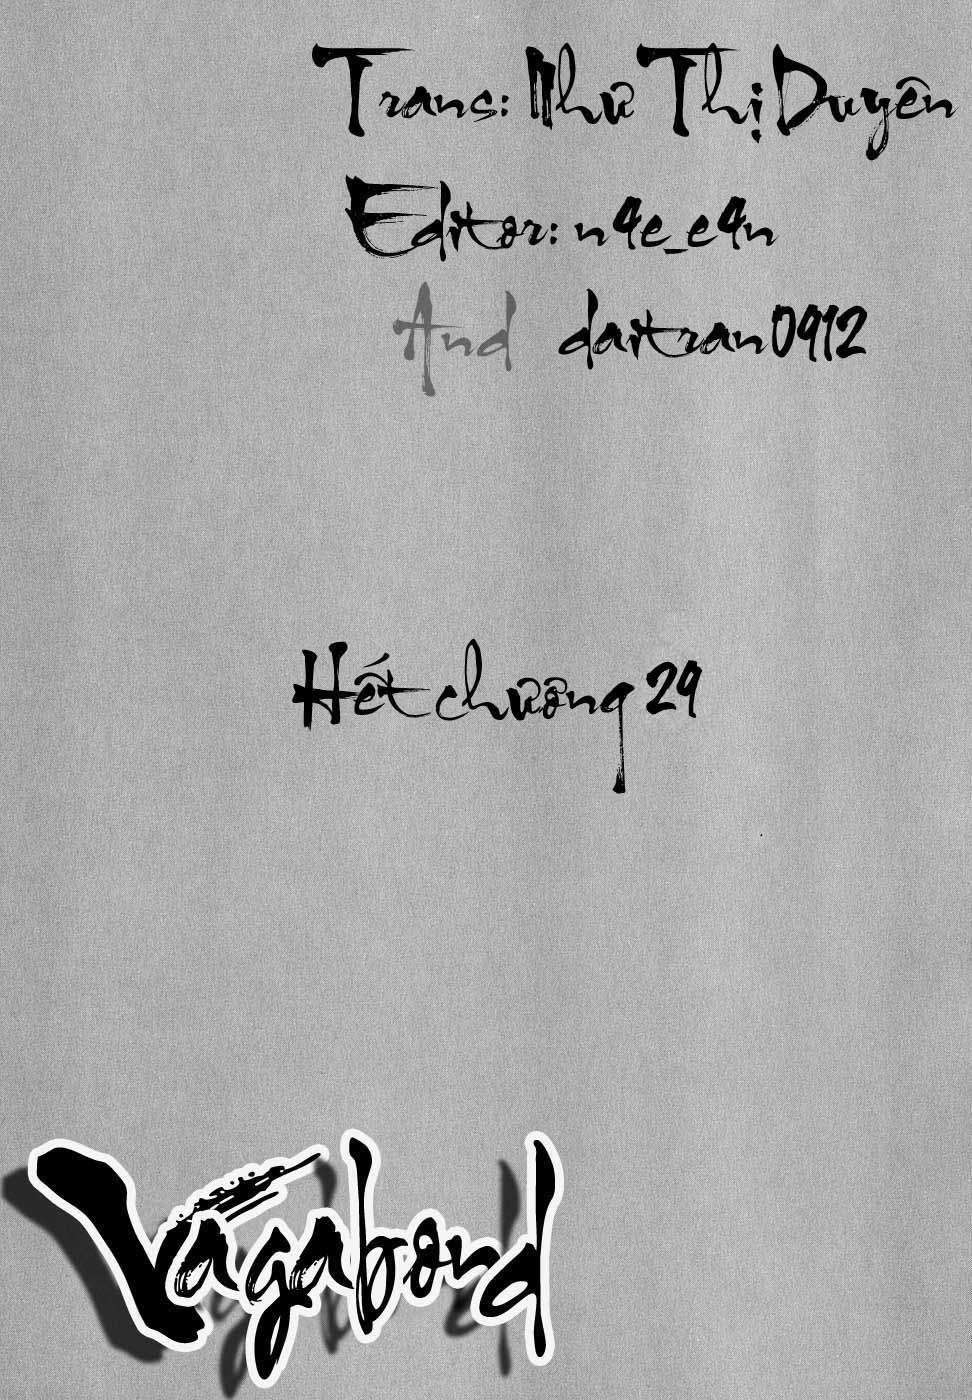 Trans: Như Thị Duyên
Editor: n4e_e4n
And daitran0912
Hết chương 29
Vagabond